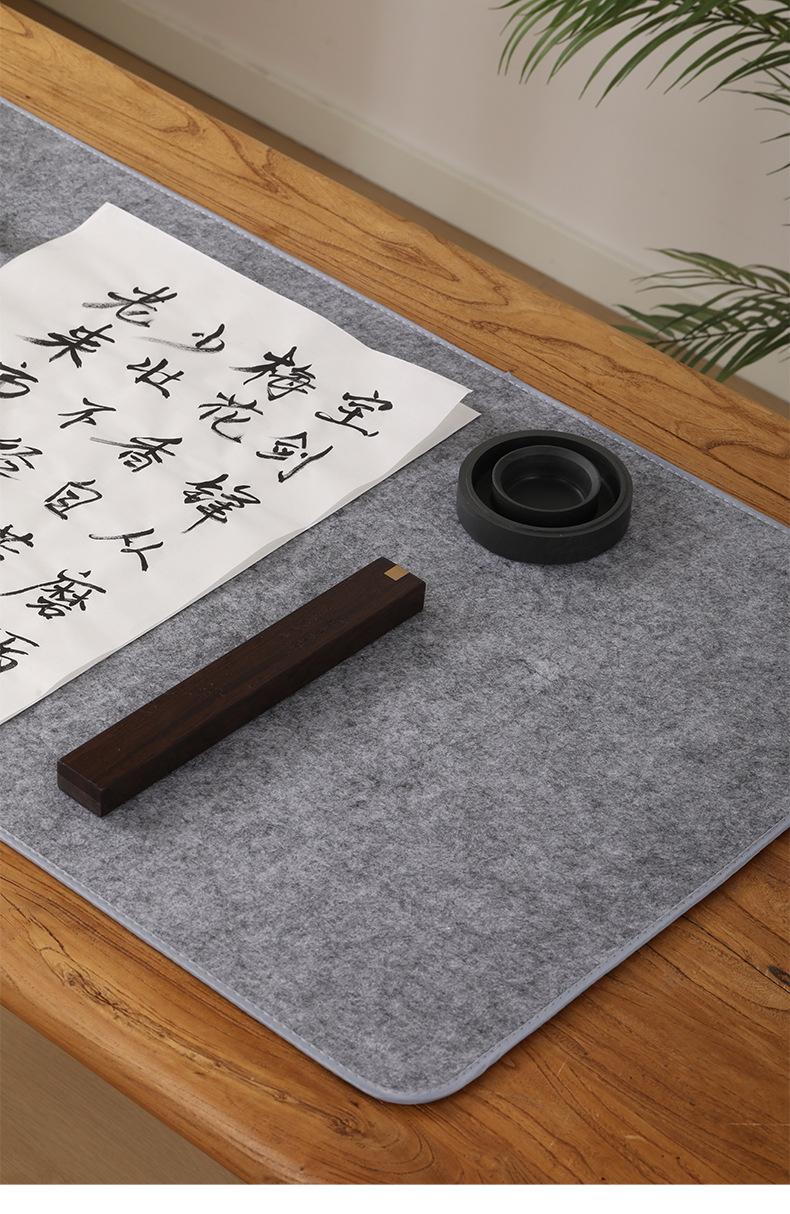 宝剑锋从磨砺
梅花香自苦
少壮不经
老来方